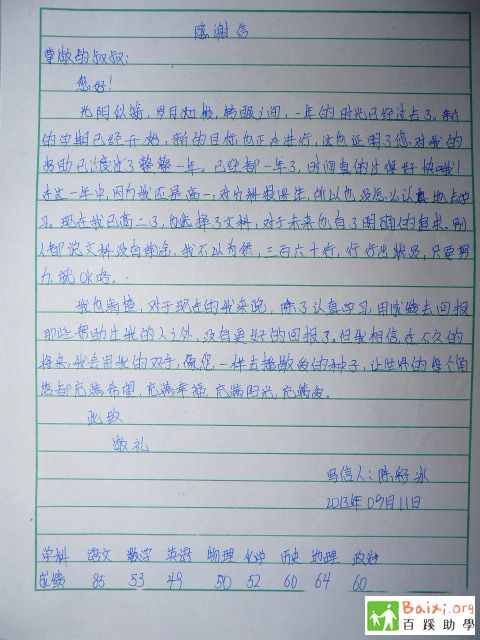 感谢信
尊敬的叔叔:
您好!
光阴似箭,岁月如梭,转眼之间,一年的时光已经过去了,新
的学期已经开始,新的目标也正在进行,这也证明了您对我的
帮助已度过了整整一年。已经都一年了,时间真的过得好快哦!
在这一年中,因为我还是高一,对分科报果生,所以也没怎么认真地去学
习。现在我已高二了,也选择了文科,对于未来也有了明确的追求。别
人都说文科没有前途,我不以为然,三百六十行,行行出状元,只要努
力就OK咯。
我也有梦,对于现在的我来说,除了认真学习,用成绩去回报
那些帮助过我的人之外,没有更好的回报了。但我相信,在不久的
将来,我会用我的双手,像您一样去播散爱的种子,让世界的每个角
落都充满希望,充满幸福,充满阳光,充满爱。
此致
敬礼
写信人:陈 冰
2013年09月11日
学科 语文 数学 英语 物理 化学 历史 地理 政治
成绩 85 53 49 50 52 60 64 60
Baixi.org
百蹊助學